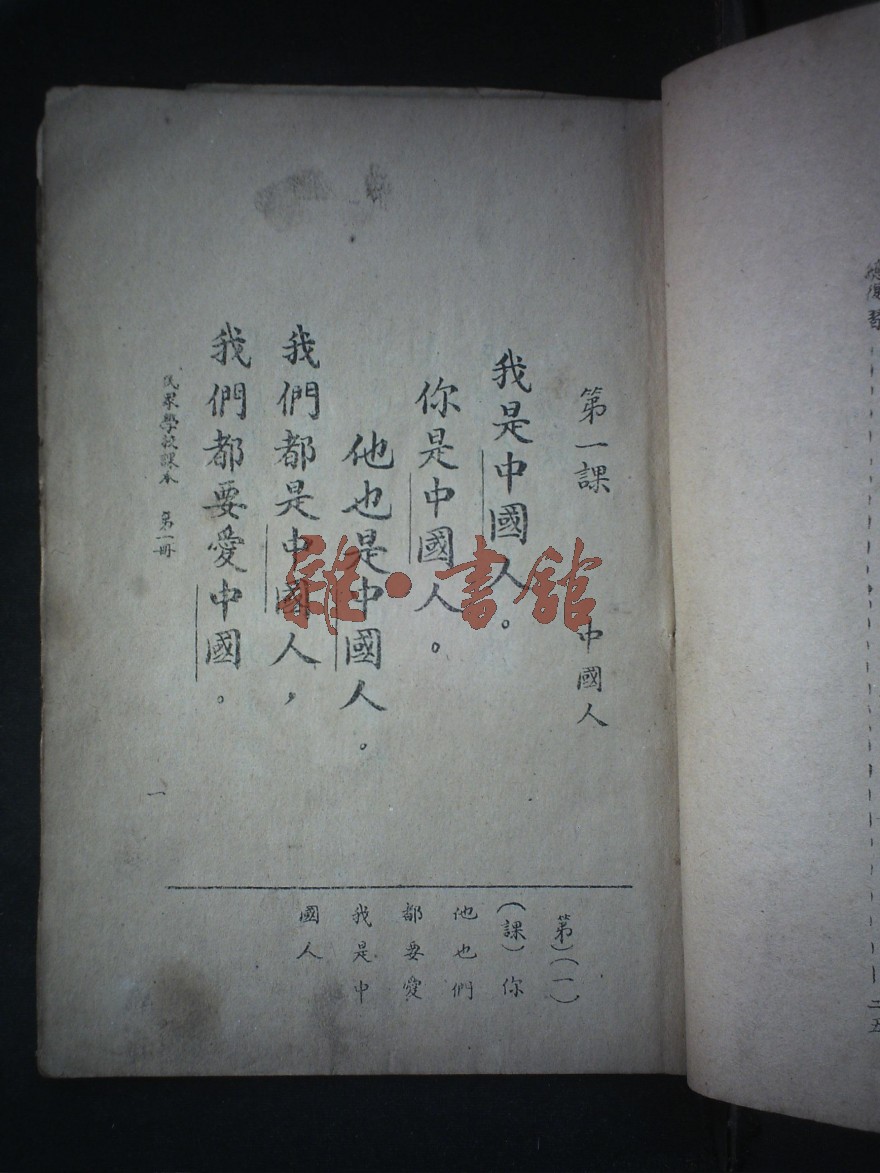 第一課　中國人
我是中國人。
你是中國人。
他也是中國人。
我們都是中國人，
我們都要愛中國。
民眾學校課本　第一冊
一
（第）（一）
（課）你
他也們
都要愛
我是中
國人
雜·書館
總復習
二五